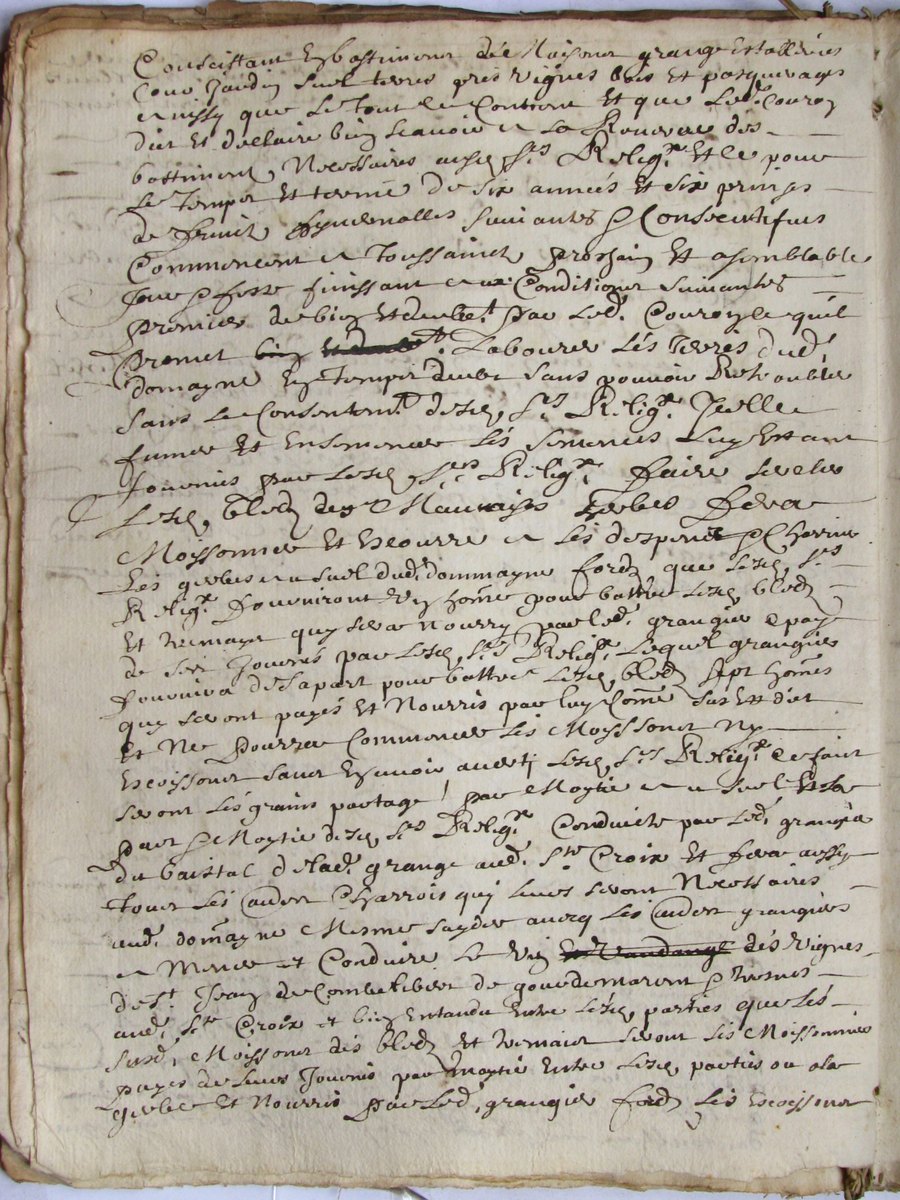 Consistant En bastiment de Maisons grange Establéries
Cour Jardin suel terres prés vignes bois et pasquerages
Ainssy que le tout se Contient et que Led. Couroy
dict et declaire bien scavoir a La Reserve des
bastiment Necessaires ausd. Srs Religx. Et Ce pour
Le Temps Et terme de six années Et six prinses
de fruict suivantes & Consecutifves
Commencent a Toussainct prochain Et asemblable
Jour & feste finissant aux Conditions suivantes
premier de bien Et deubmt. par Led. Couroy le quel
promet Labourer Lés Terres dud.
domayne En Temps deub sans pouvoir
sans Le Consentemt. desd. Srs Religx. Icelle
fumer Et Ensemencer Lés semences Luy Estant
fournies par Lesd. Srs Religx. faire sercler
Lesd. bledz des Mauvaises herbes fera
Moissonner Et escourre a Lés despens & Charrier
Lés gerbes au suel dud. dommayne fordz que Lesd. Srs
Religx. fourniront Ung home pour battre Lesd. bledz
Et tremays quy sera nourry par led. grangier & payé
de ses Journés par Lesd. Srs Religx. Lequel grangier
fournira de sa part pour battre Lesd. bledz sept homes
quy seront payés Et Nourris par luy Come sus Est dict
Et Ne pourra Commencer Lés Moyssons Ny
escoissons sans En avoir averty Lesd. Srs Religx. Ce faict
seront Lés grains partagé par Moytié au suel Et La
part & Moytié desd. Srs Religx. Conduicte par Led. grangier
du baistal delad. grange aud. Ste Croix Et fera aussy
tous Lés Charrois quy Leurs seront Necessaires
aud. domayne Mesme sayder avecq Lés grangiers
a Mener et Conduire Le Vin Et Vandange dés Vignes
de St. Jean de
aud. Ste Croix et bien Entandu Entre Lesd. parties que Lés
susd. Moissons dés bledz Et tremais seront Lés Moissonnier
payés de Leurs Journés par Moytié Entre Lesd. parties ou a la
gerbe Et Nourris par Led. grangier fordz Lés escoissons